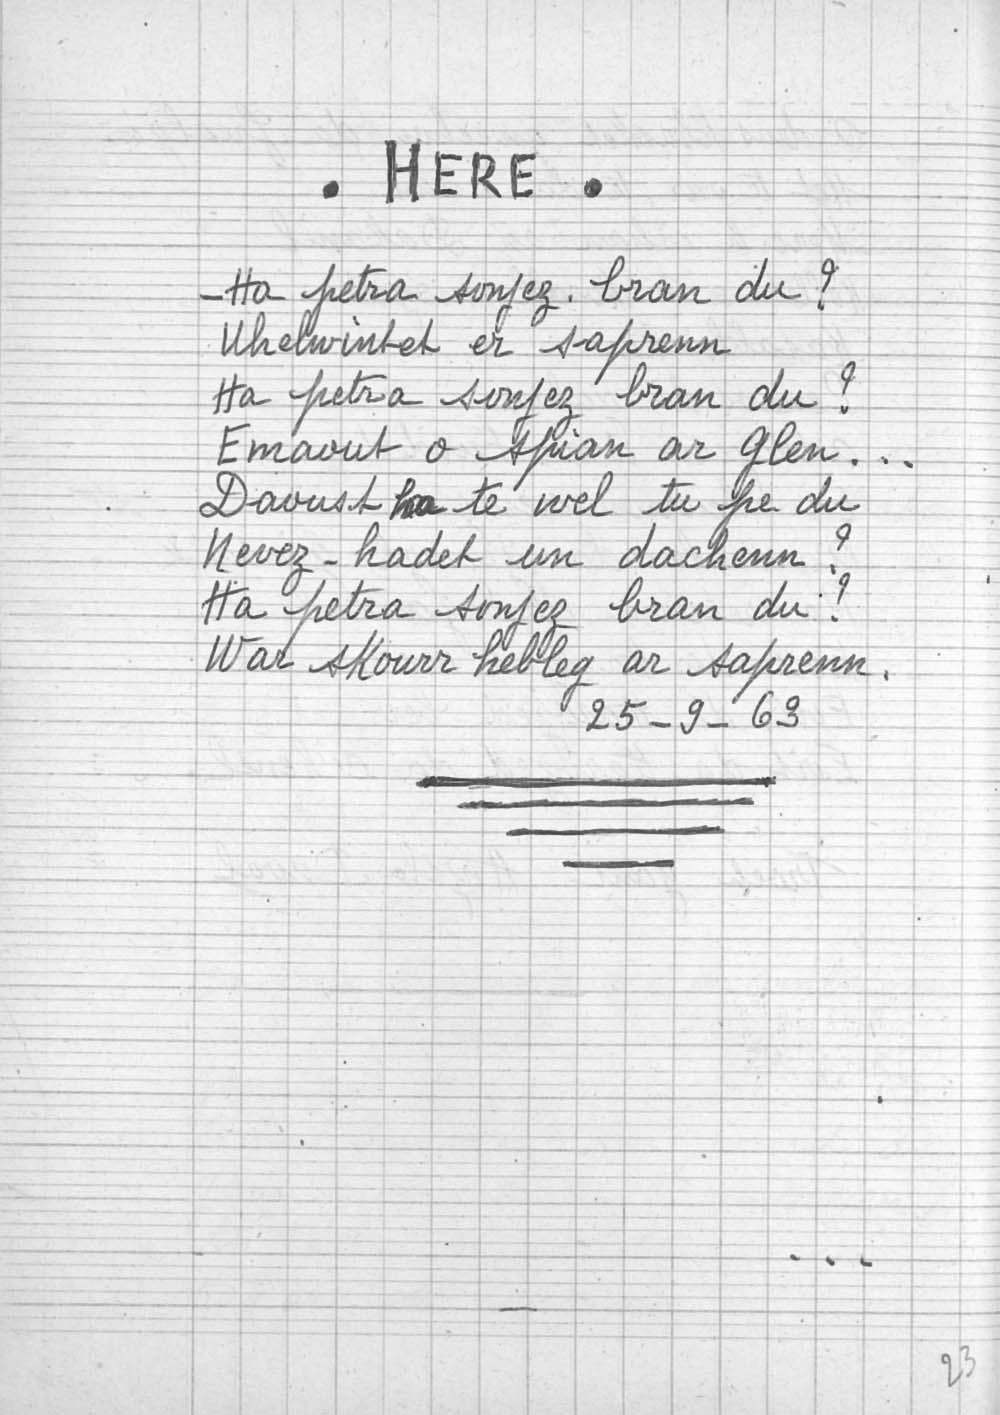 . HERE .
- Ha petra sonjez. bran du ?
Uhelwintet er saprenn
Ha petra sonjez bran du ?
Emaout o spian ar Glen...
Daoust ha te wel tu pe du
Nevez-hadet un dachenn ?
Ha petra sonjez bran du ?
War skourr hebleg ar saprenn.
25-9-63
23